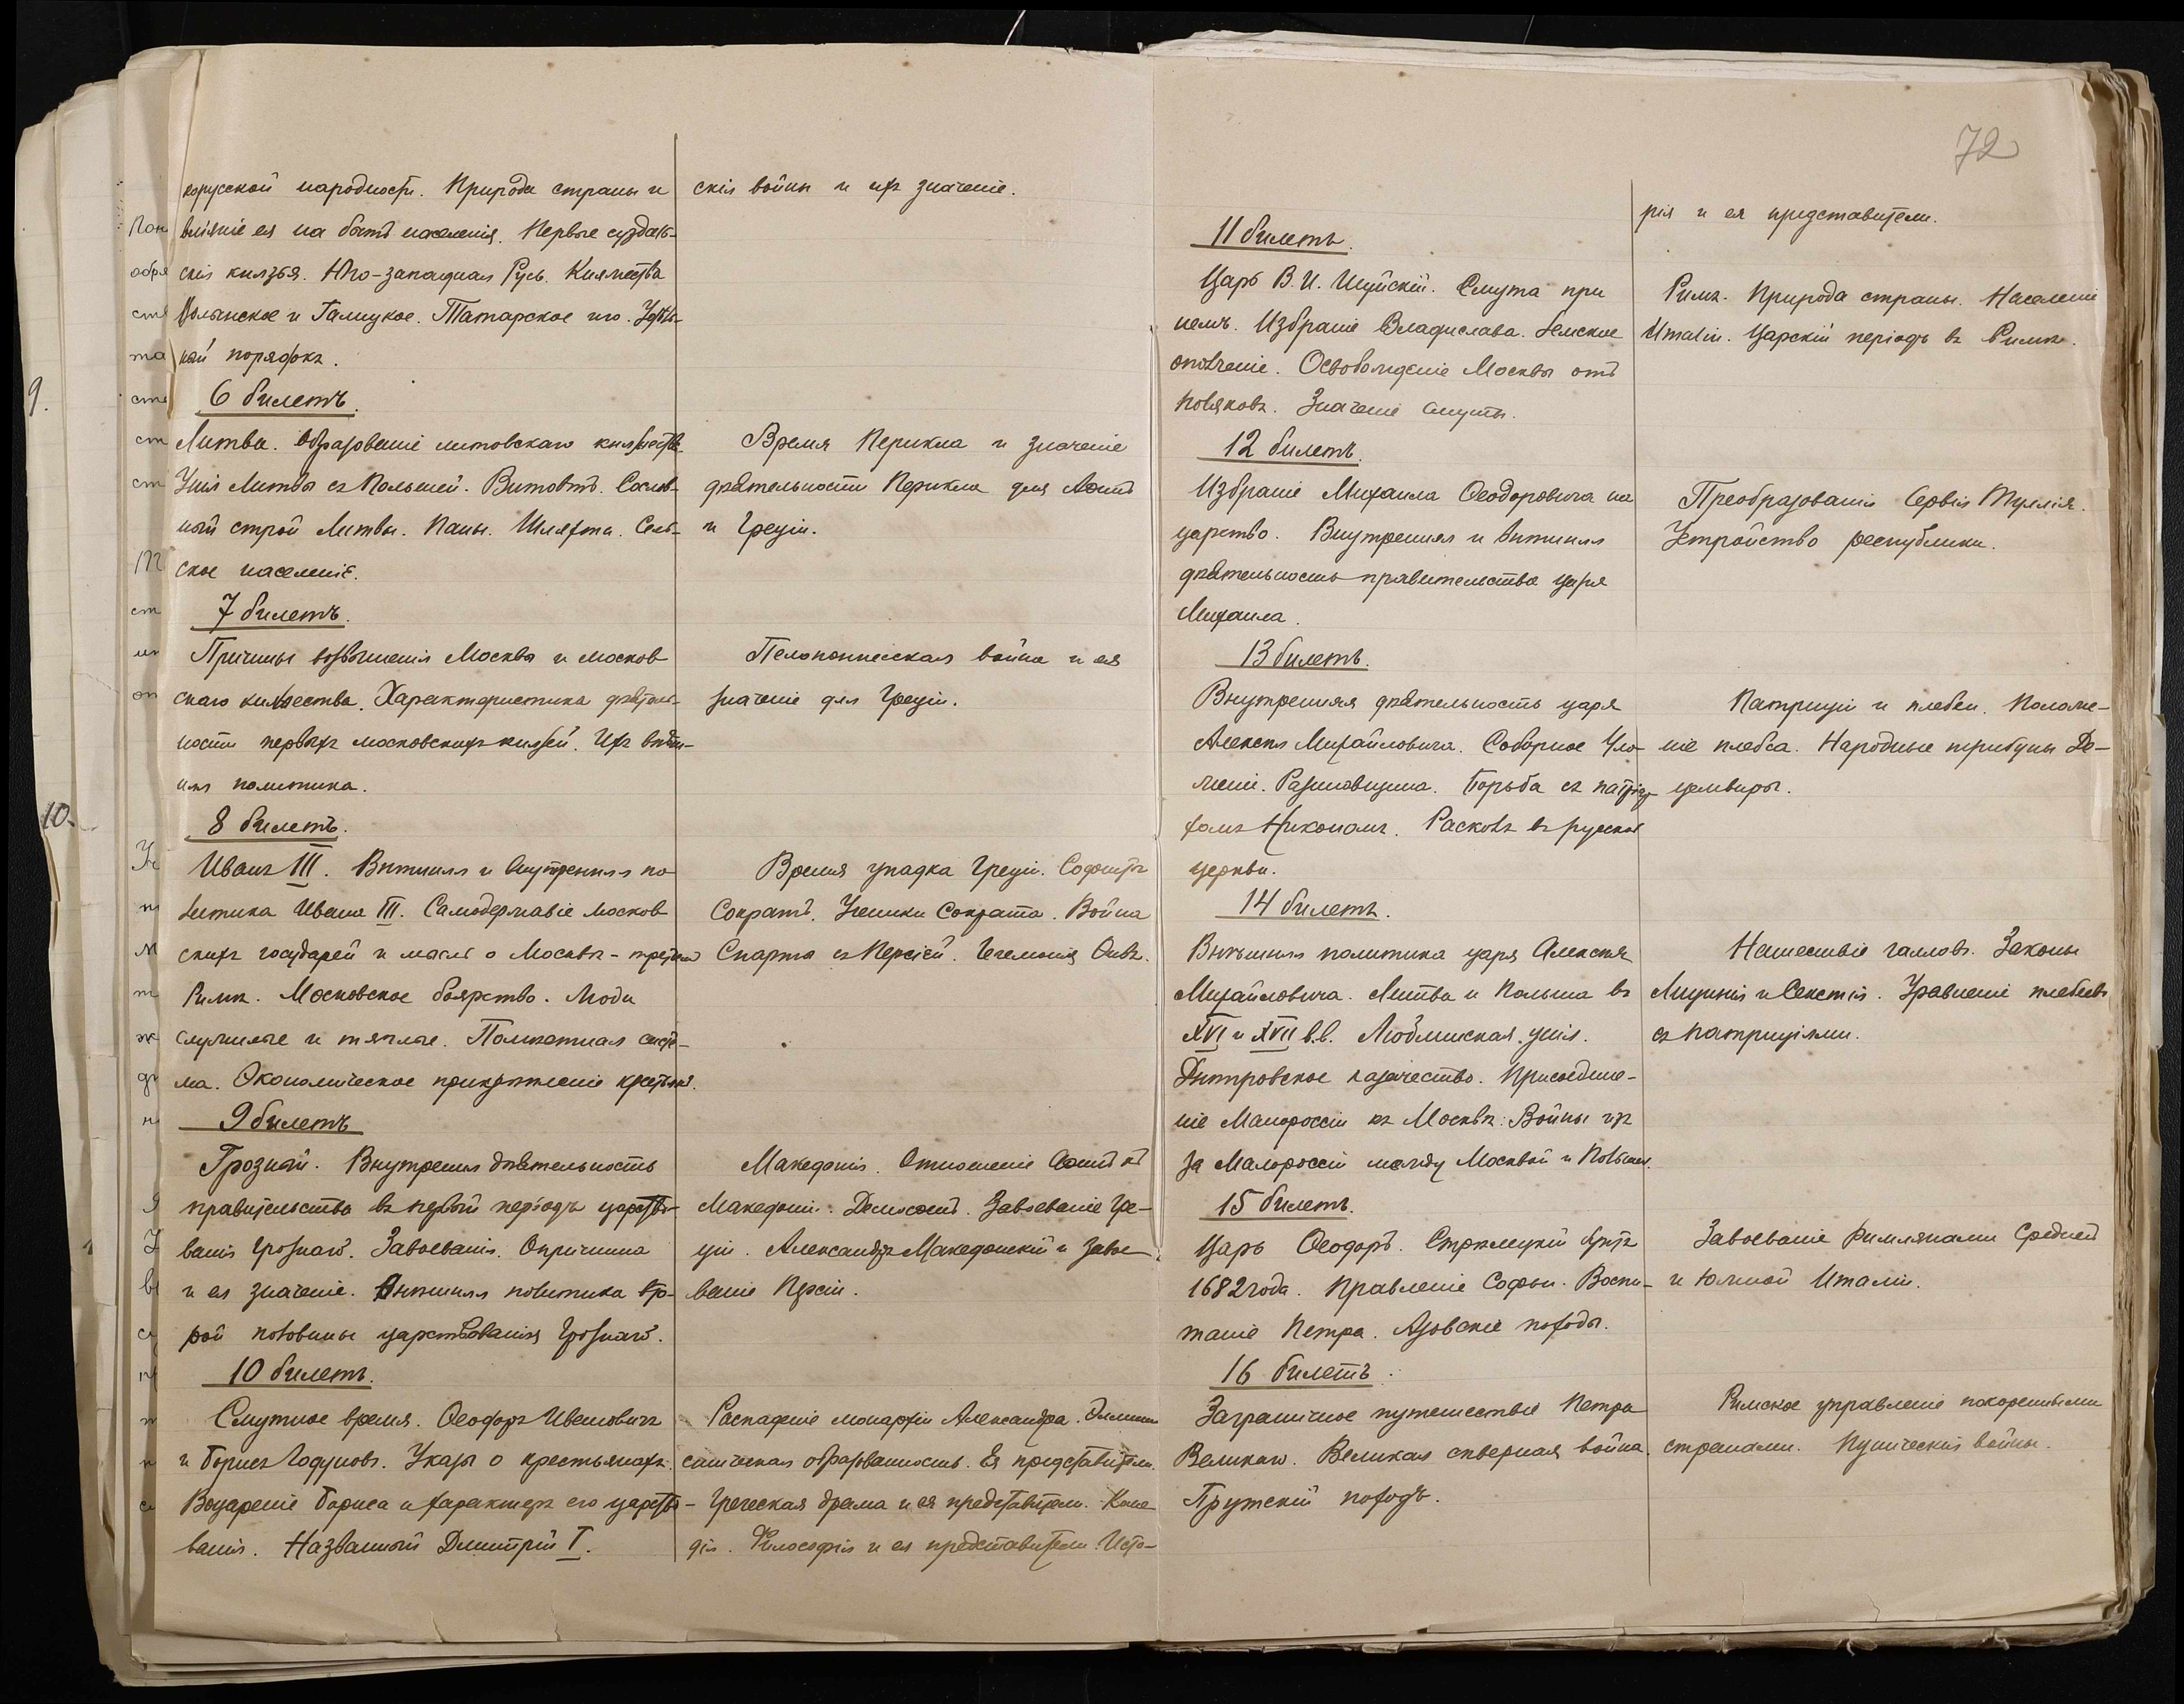 корусской народности. Природа страны и
вліяніе ея на бытъ населенія. Первые суздаль-
скіе князья. Юго-западная Русь. Княжества
Волынское и Галицкое. Татарское иго. Удѣль-
ный порядокъ.
6 билетъ.
Литва. Образованіе литовскаго княжества.
Унія Литвы съ Польшей. Витовтъ. Сослов-
ный строй Литвы. Паны. Шляхта. Сель-
ское населеніе.
7 билетъ.
Причины возвышенія Москвы и москов
скаго княжества. Характеристика дѣятель-
ности первыхъ московскихъ князей. Ихъ внѣш-
няя политика.
8 билетъ.
Иванъ III. Внѣшняя и внутренняя по
литика Ивана III. Самодержавіе москов
скихъ государей и мысль о Москвѣ - третьемъ
Римѣ. Московское боярство. Люди
служилые и тяглые. Помѣстная систе-
ма. Экономическое прикрѣпленіе крестьянъ.
9 билетъ
Грозный. Внутрення дѣятельность
правительства въ первый періодъ царство-
ванія Грознаго. Завоеванія. Опричнина
и ея значеніе. Внѣшняя политика вто-
рой половины царствованія Грознаго.
10 билетъ.
Смутное время. Ѳеодоръ Ивановичъ
и Борисъ Годуновъ. Указы о крестьянахъ.
Воцареніе Бориса и характеръ его царство-
ванія. Названный Дмитрій I.
скія войны и ихъ значеніе.
Время Перикла и значеніе
дѣятельности Перикла для Аѳинъ
и Греціи.
Пелопоннесская война и ея
значеніе для Греціи.
Время упадка Греціи. Софисты
Сократъ. Ученики Сократа. Война
Спарты съ Персіей. Гегемонія Ѳивъ.
Македонія. Отношеніе Аѳинъ къ
Македоніи. Демосѳенъ. Завоеваніе Гре-
ціи. Александръ Македонскій и завое
ваніе Персіи.
Распаденіе монархіи Александра. Эллини
стическая образованность. Ея представители.
Греческая драма и ея представители. Коме
дія. Философія и ея представители. Исто-
72
11 билетъ.
Царь В. И. Шуйскій. Смута при
немъ. Избраніе Владислава. Земское
ополченіе. Освобожденіе Москвы отъ
поляковъ. Значеніе смуты.
12 билетъ.
Избраніе Михаила Ѳеодоровича на
царство. Внутренняя и внѣшняя
дѣятельность правительства царя
Михаила.
13 билетъ.
Внутренняя дѣятельность царя
Алексѣя Михайловича. Соборное Уло-
женіе. Разиновщина. Борьба съ патріар
хомъ Никономъ. Расколъ въ русской
церкви.
14 билетъ.
Внѣшняя политика царя Алексѣя
Михайловича. Литва и Польша въ
XVI и XVII в.в. Люблинская унія.
Днѣпровское казачество. Присоедине-
ніе Малороссіи къ Москвѣ. Войны изъ
за Малороссіи между Москвой и Польшей.
15 билетъ.
Царь Ѳеодоръ. Стрѣлецкій бунтъ
1682 года. Правленіе Софьи. Воспи-
таніе Петра. Азовскіе походы.
16 билетъ.
Заграничное путешествіе Петра
Великаго. Великая сѣверная война.
Прутскій походъ.
рія и ея представители.
Римъ. Природа страны. Населеніе
Италіи. Царскій періодъ въ Римѣ.
Преобразованія Сервія Туллія.
Устройство республики.
Патриціи и плебеи. Положе-
ніе плебса. Народные трибуны Де-
цемвиры.
Нашествіе галловъ. Законы
Лицинія и Секстія. Уравненіе плебеевъ
съ патриціями.
Завоеваніе римлянами Средней
и Южной Италіи.
Римское управленіе покоренными
странами. Пуническія войны.
9.
10.